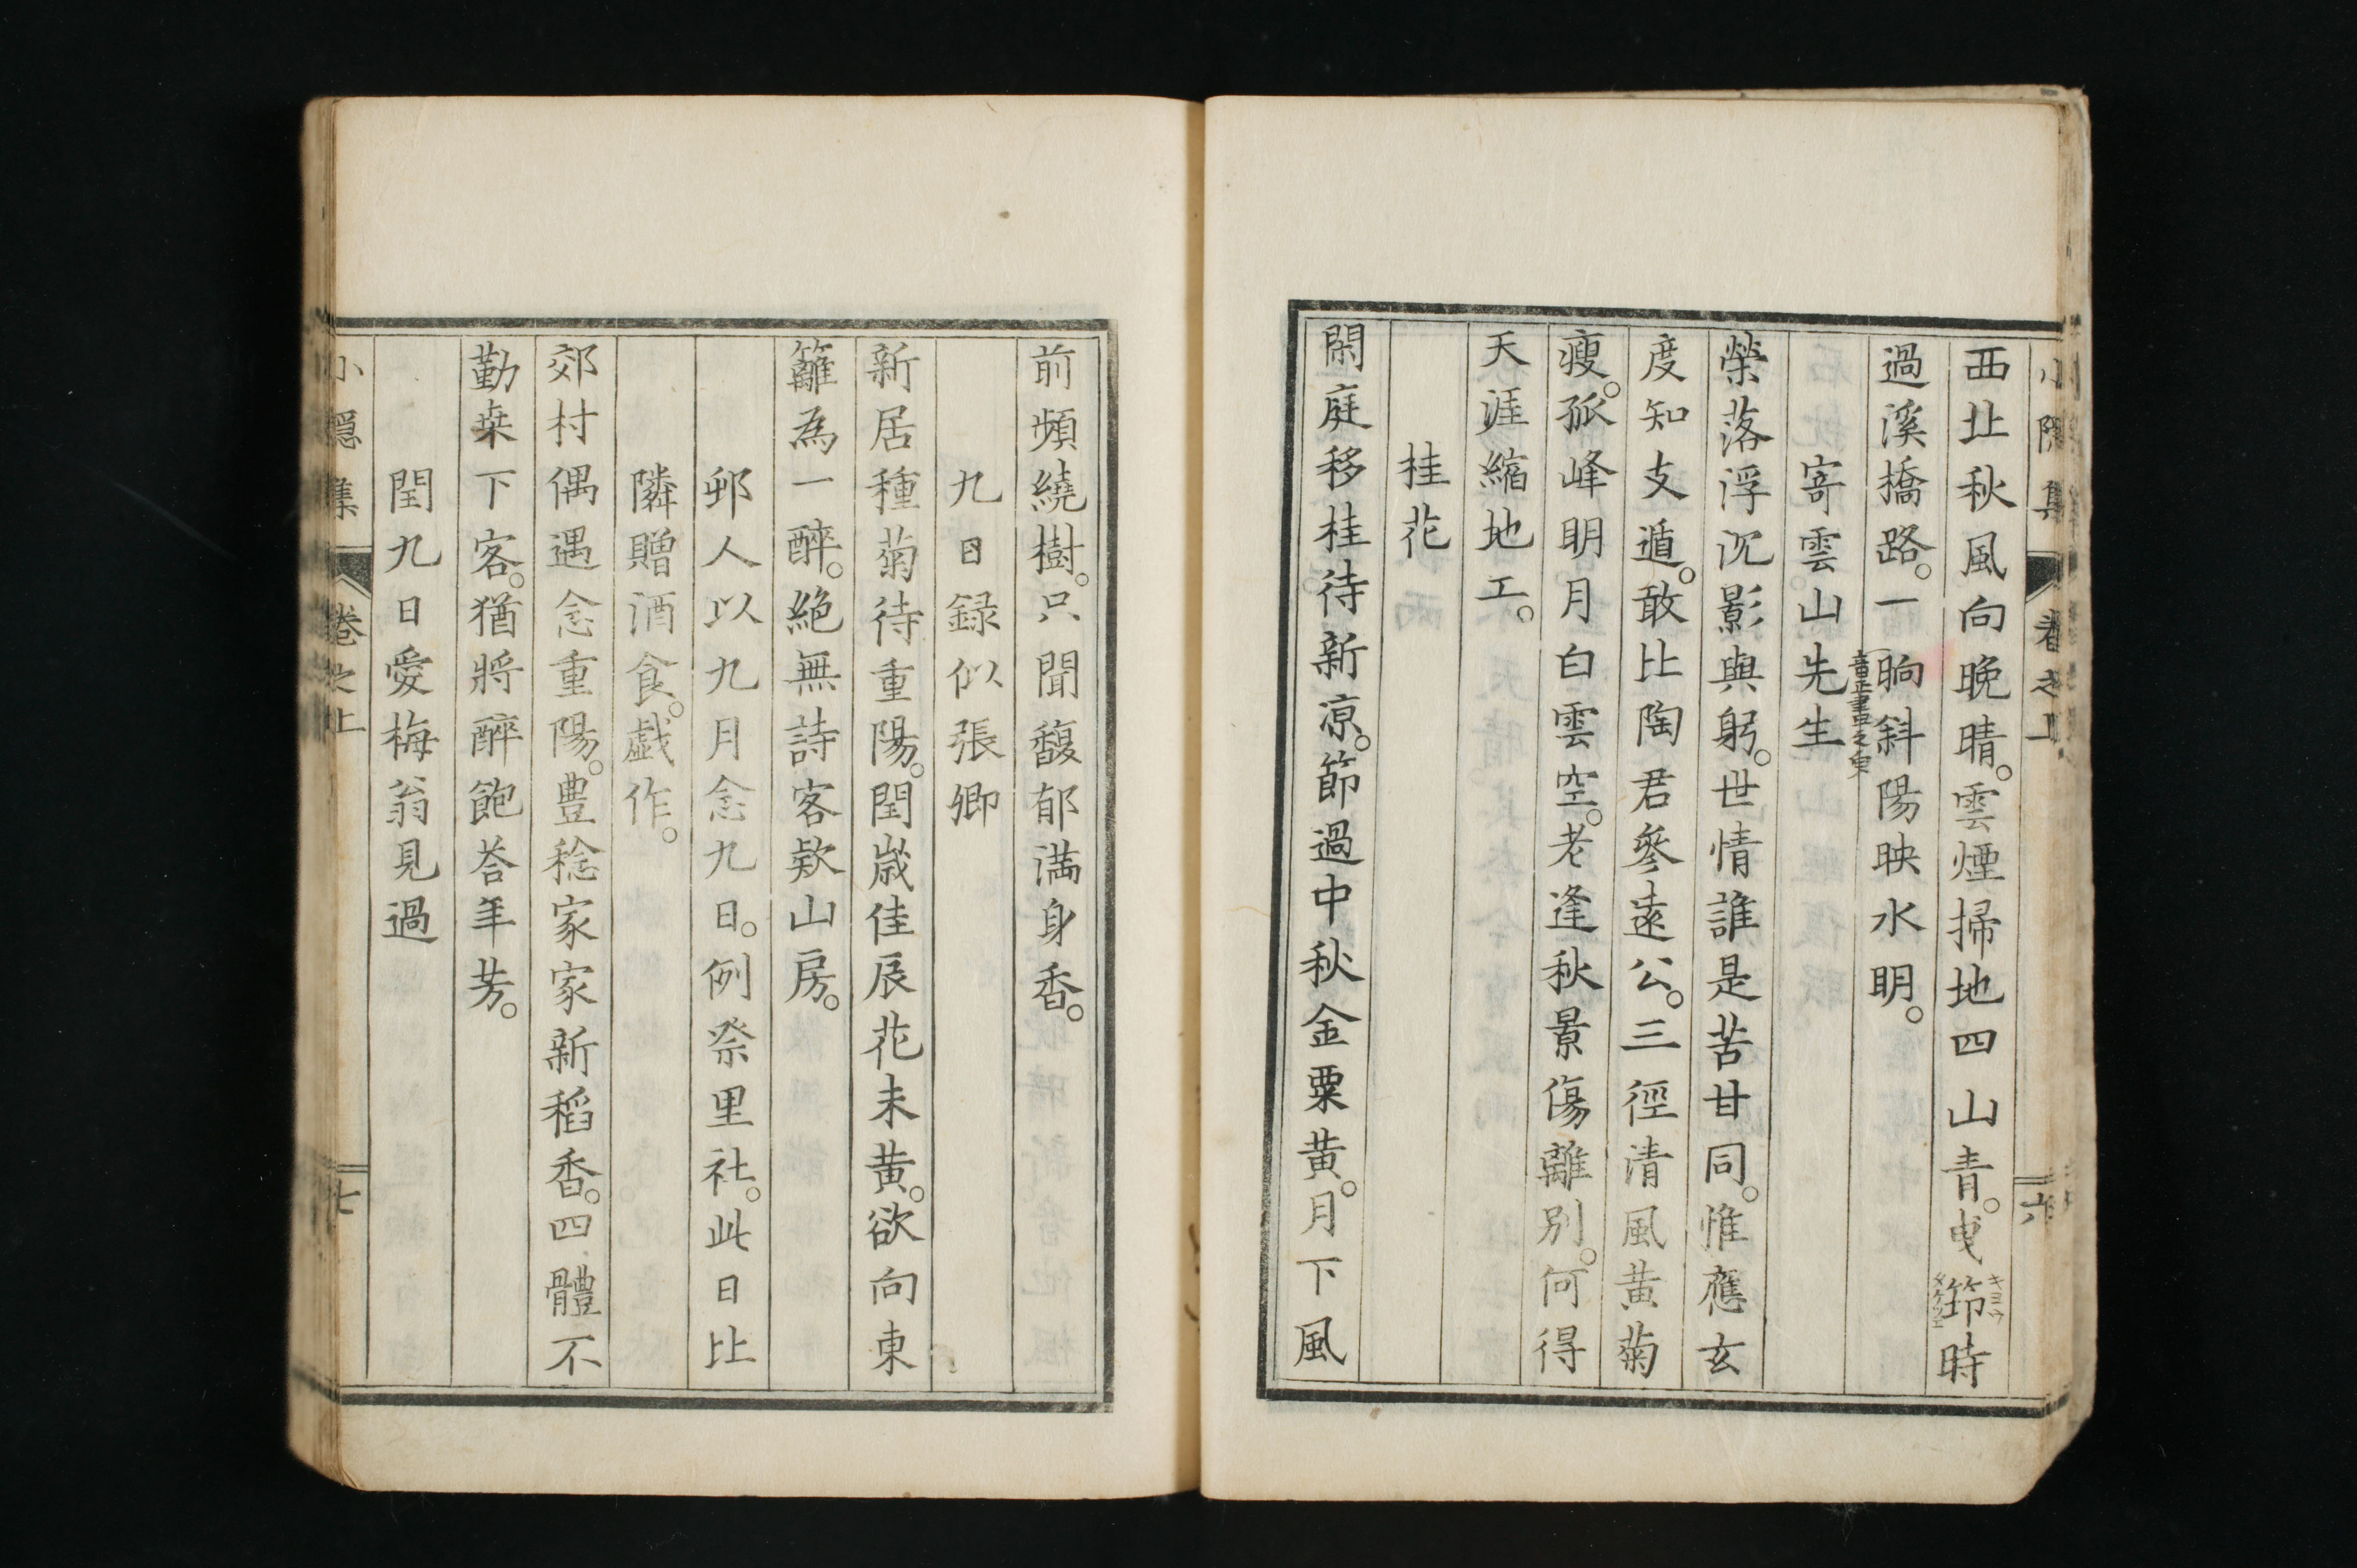 小隱集 卷之上 六
西北秋風向晚晴。雲煙掃地四山青。曳筇時
キヨウ
過溪橋路。一晌斜陽映水明。
寄雲山先生
榮落浮沉影與躬。世情誰是苦甘同。惟應玄
度知支遁。敢比陶君參遠公。三徑清風黃菊
瘦。孤峰明月白雲空。老逢秋景傷離別。何得
天涯縮地工。
桂花
閑庭移桂待新凉。節過中秋金粟黃。月下風
前頻繞樹。只聞馥郁滿身香。
九日録似張卿
新居種菊待重陽。閏歲佳辰花未黃。欲向東
籬為一醉。絕無詩客欵山房。
邨人以九月念九日。例祭里社。此日比
隣贈酒食。戯作。
郊村偶遇念重陽。豊稔家家新稻香。四體不
勤桒下客。猶將醉飽荅年芳。
閏九日愛梅翁見過
小隱集 卷之上 七